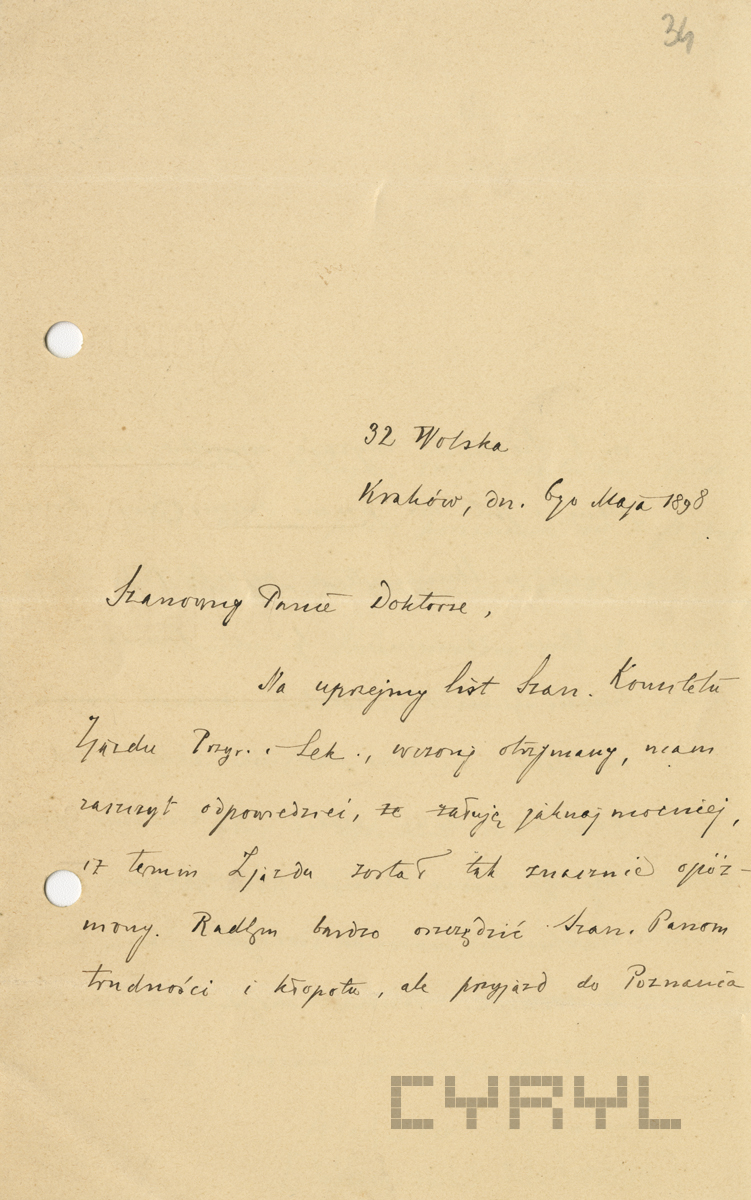 34
32 Wolska
Kraków, dn. 6go Maja 1898
Szanowny Panie Doktorze,
Na uprzejmy list Szan. Komitetu
Zjazdu Przyr. i Lek., wczoraj otrzymany, mam
zaszczyt odpowiedzieć, że żałuję jaknajmocniej,
iż termin Zjazdu został tak znacznie opóź-
niony. Radbym bardzo oszczędzić Szan. Panom
trudności i kłopotu, ale przyjazd do Poznania
CYRYL